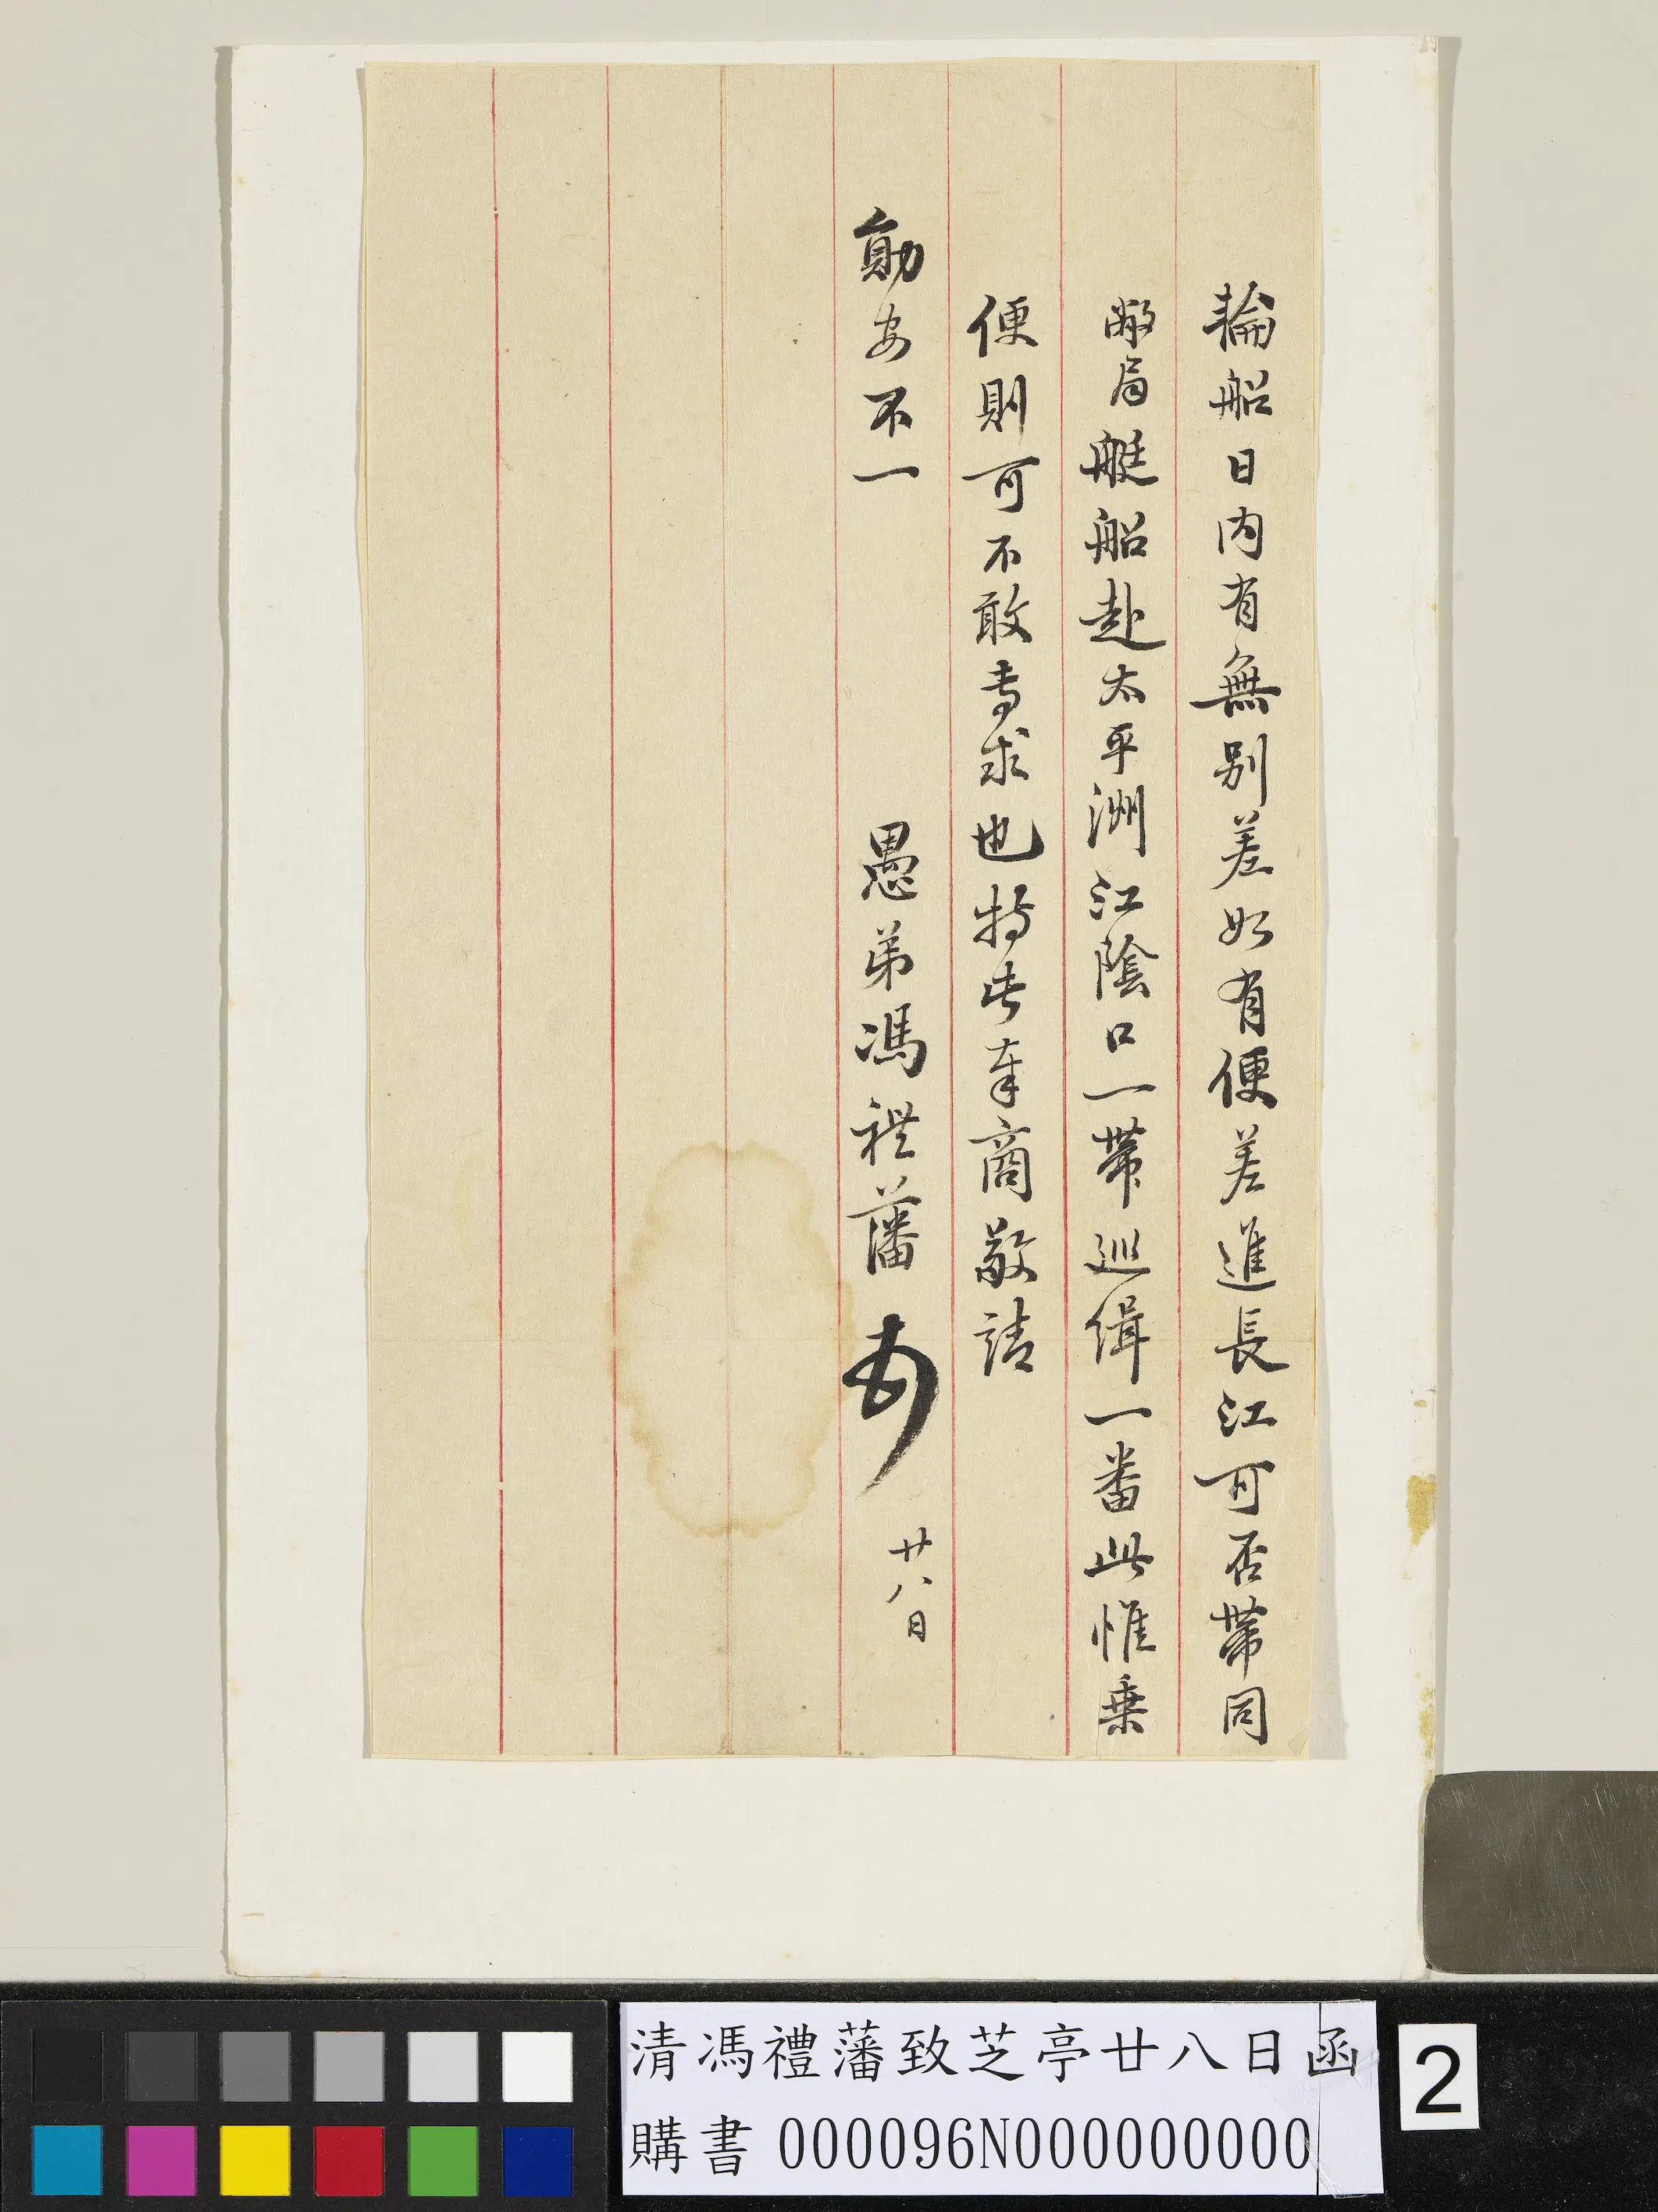 輪船日內有無別差如有便差進長江可否帶同
敝局艇船赴太平洲江陰口一帶巡緝一番此惟乗
便則可不敢專求也特此奉商敬請
勛安不一
愚弟馮禮藩
廿八日
清馮禮藩致芝亭廿八日函
購書 000096N000000000
2